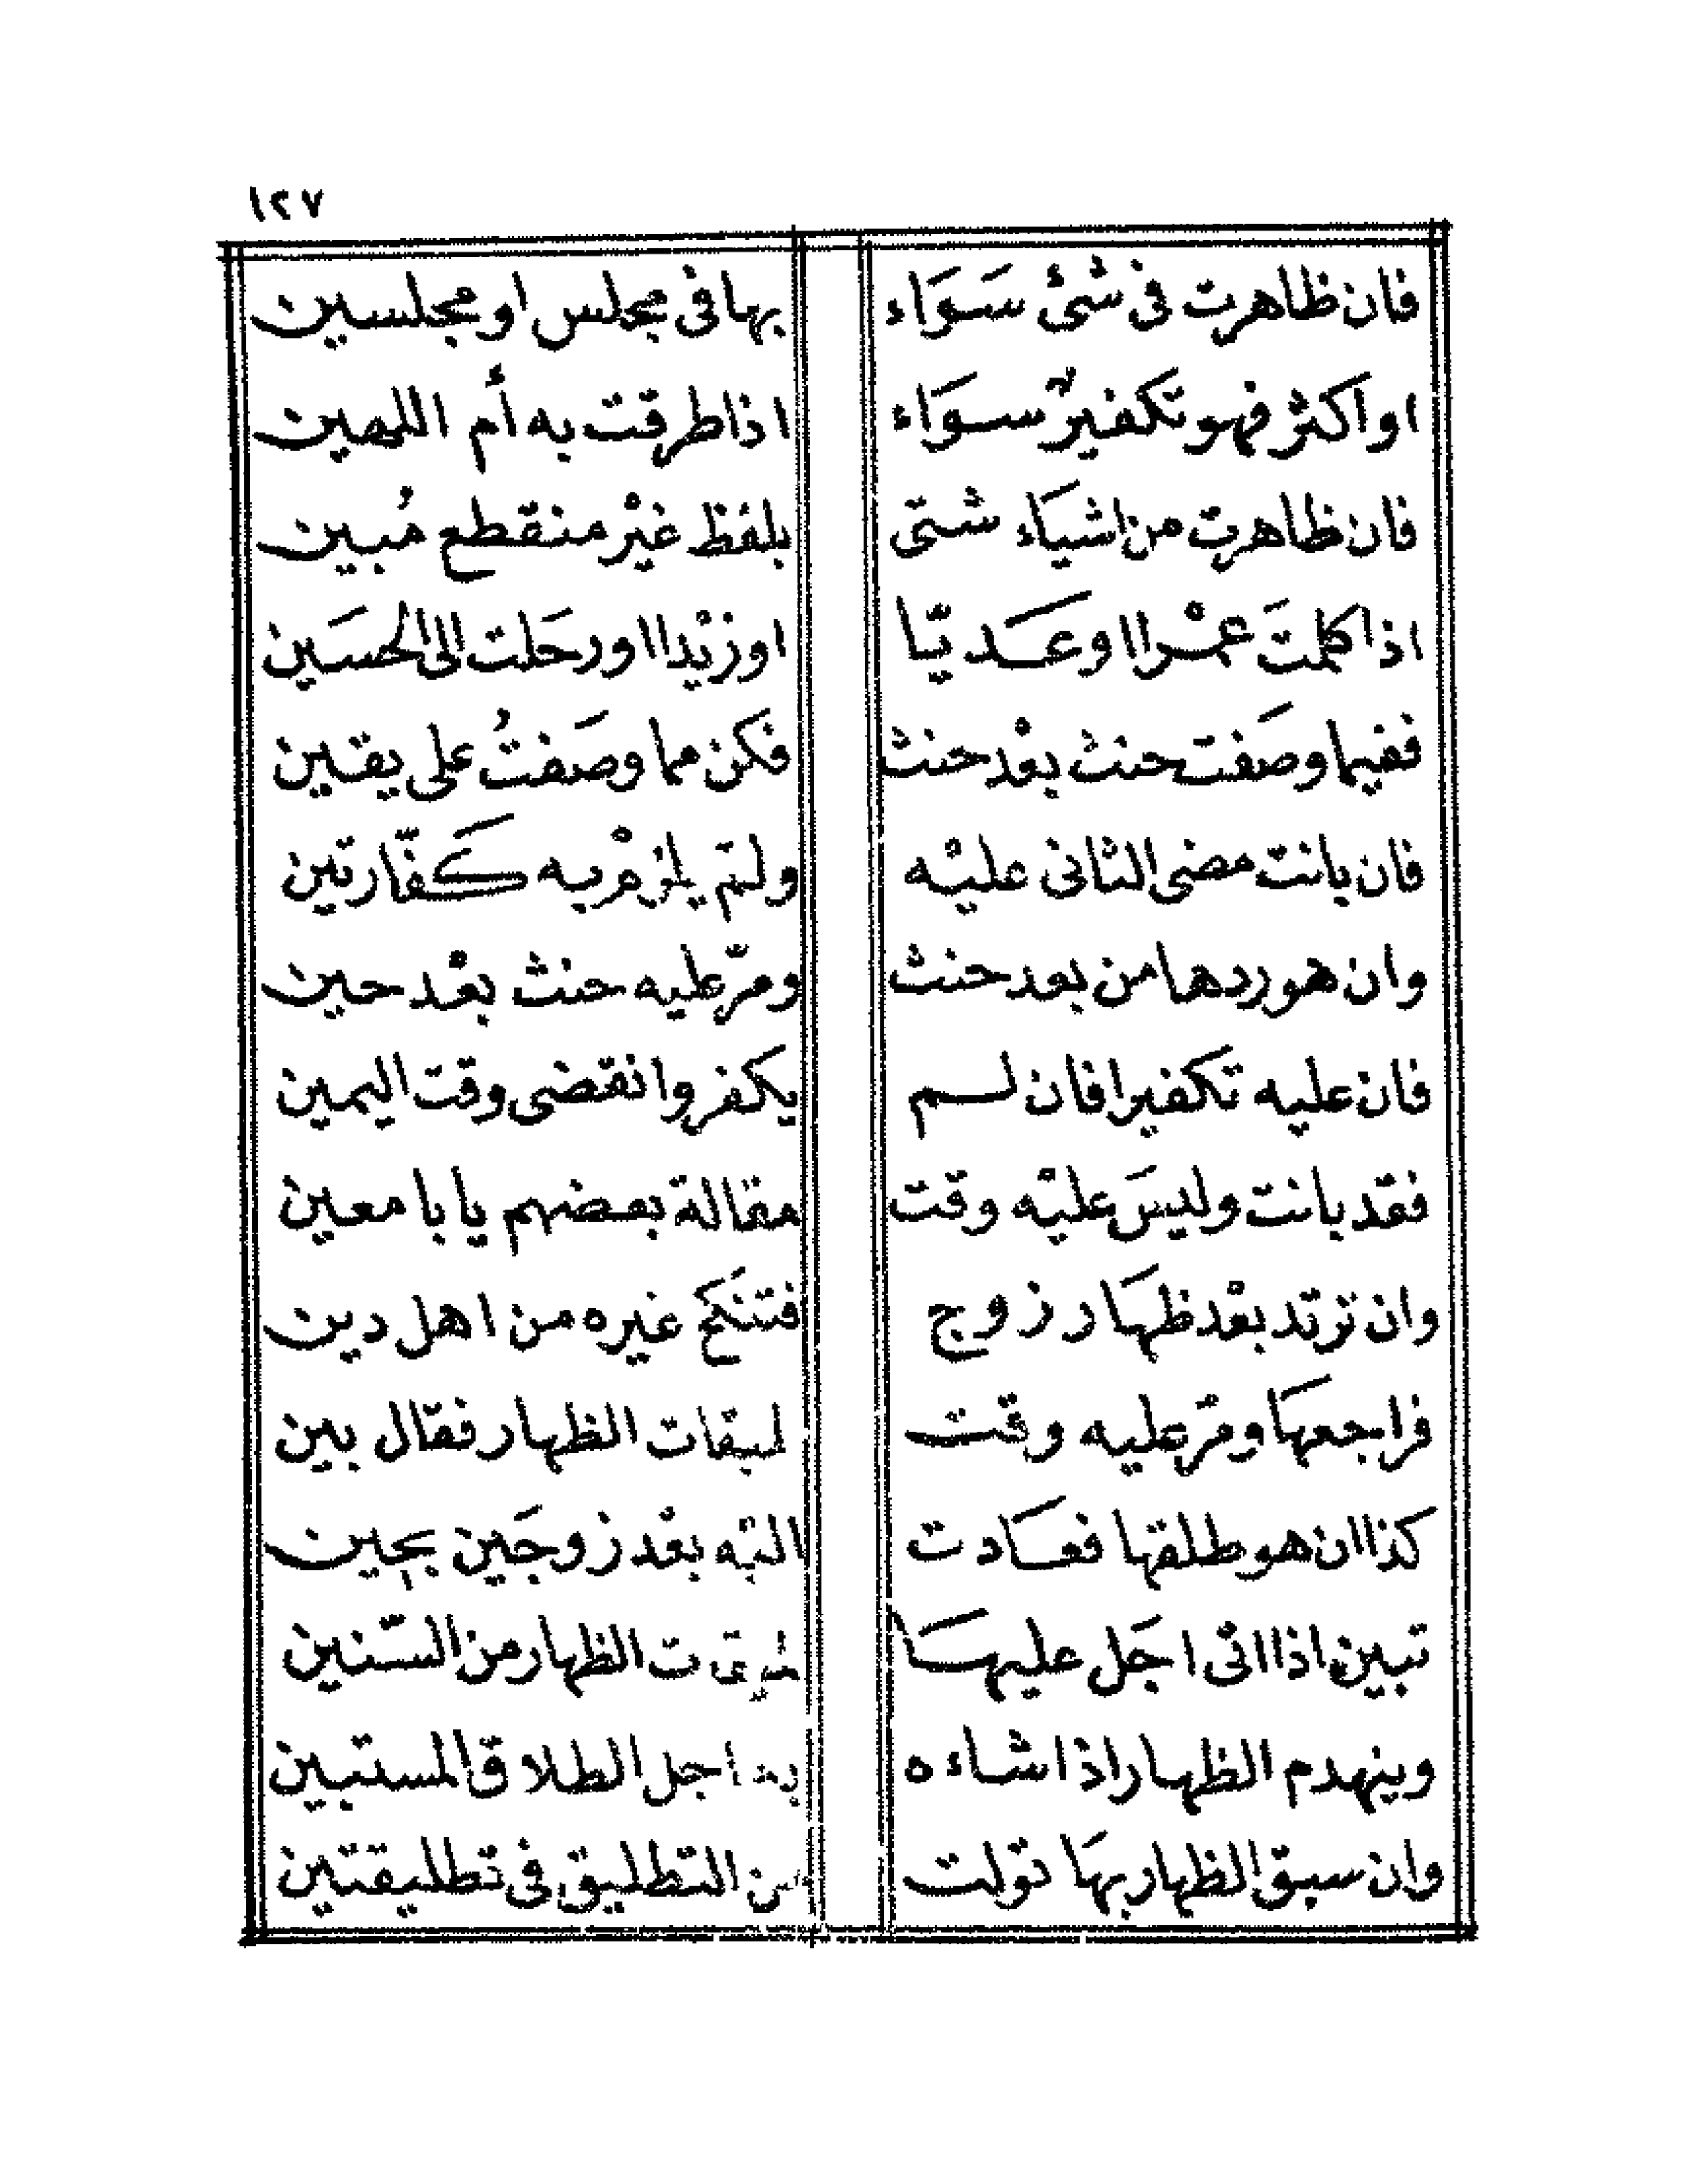 ١٢٧
فان ظاهرت فى شئ سَوَاء بها فى مجلس او مجلسين
او اكثر فهو تكفيرٌ سوَاء اذا طرقت به أم اللهين
فان ظاهرت من اشيَاء شتى بلفظ غيْر منقطع مُبين
اذا كلمتَ عمْرا او عَديّا او زيْدا او رحَلت الى الحسَين
ففيما وصَفت حنث بعْد حنث فكن مما وصَفتُ على يقين
فان بانت مضى الثانى عليْه ولم يلزمْ به كفّارتين
وان هو ردها من بعد حنث ومرّ عليه حنث بعْد حين
فان عليه تكفيرا فان لم يكفر وانقضى وقت اليمين
فقد بانت وليسَ عليْه وقت مقالة بعضهم يا با معين
وان تزتد بعْد ظهَار زوج فتنَكح غيره من اهل دين
فراجعهَا ومرّ عليه وقت لميقات الظهار فقال بين
كذا ان هو طلقها فعَادت اليْه بعْد زوجَين بحين
تبين اذا اتى اجَل عليهَا الظهار من السّنين
وينهدم الظهار اذا شاءه اجل الطلاق المستبين
وان سبق الظهار بهَا تولت من التطليق فى تطليقتين